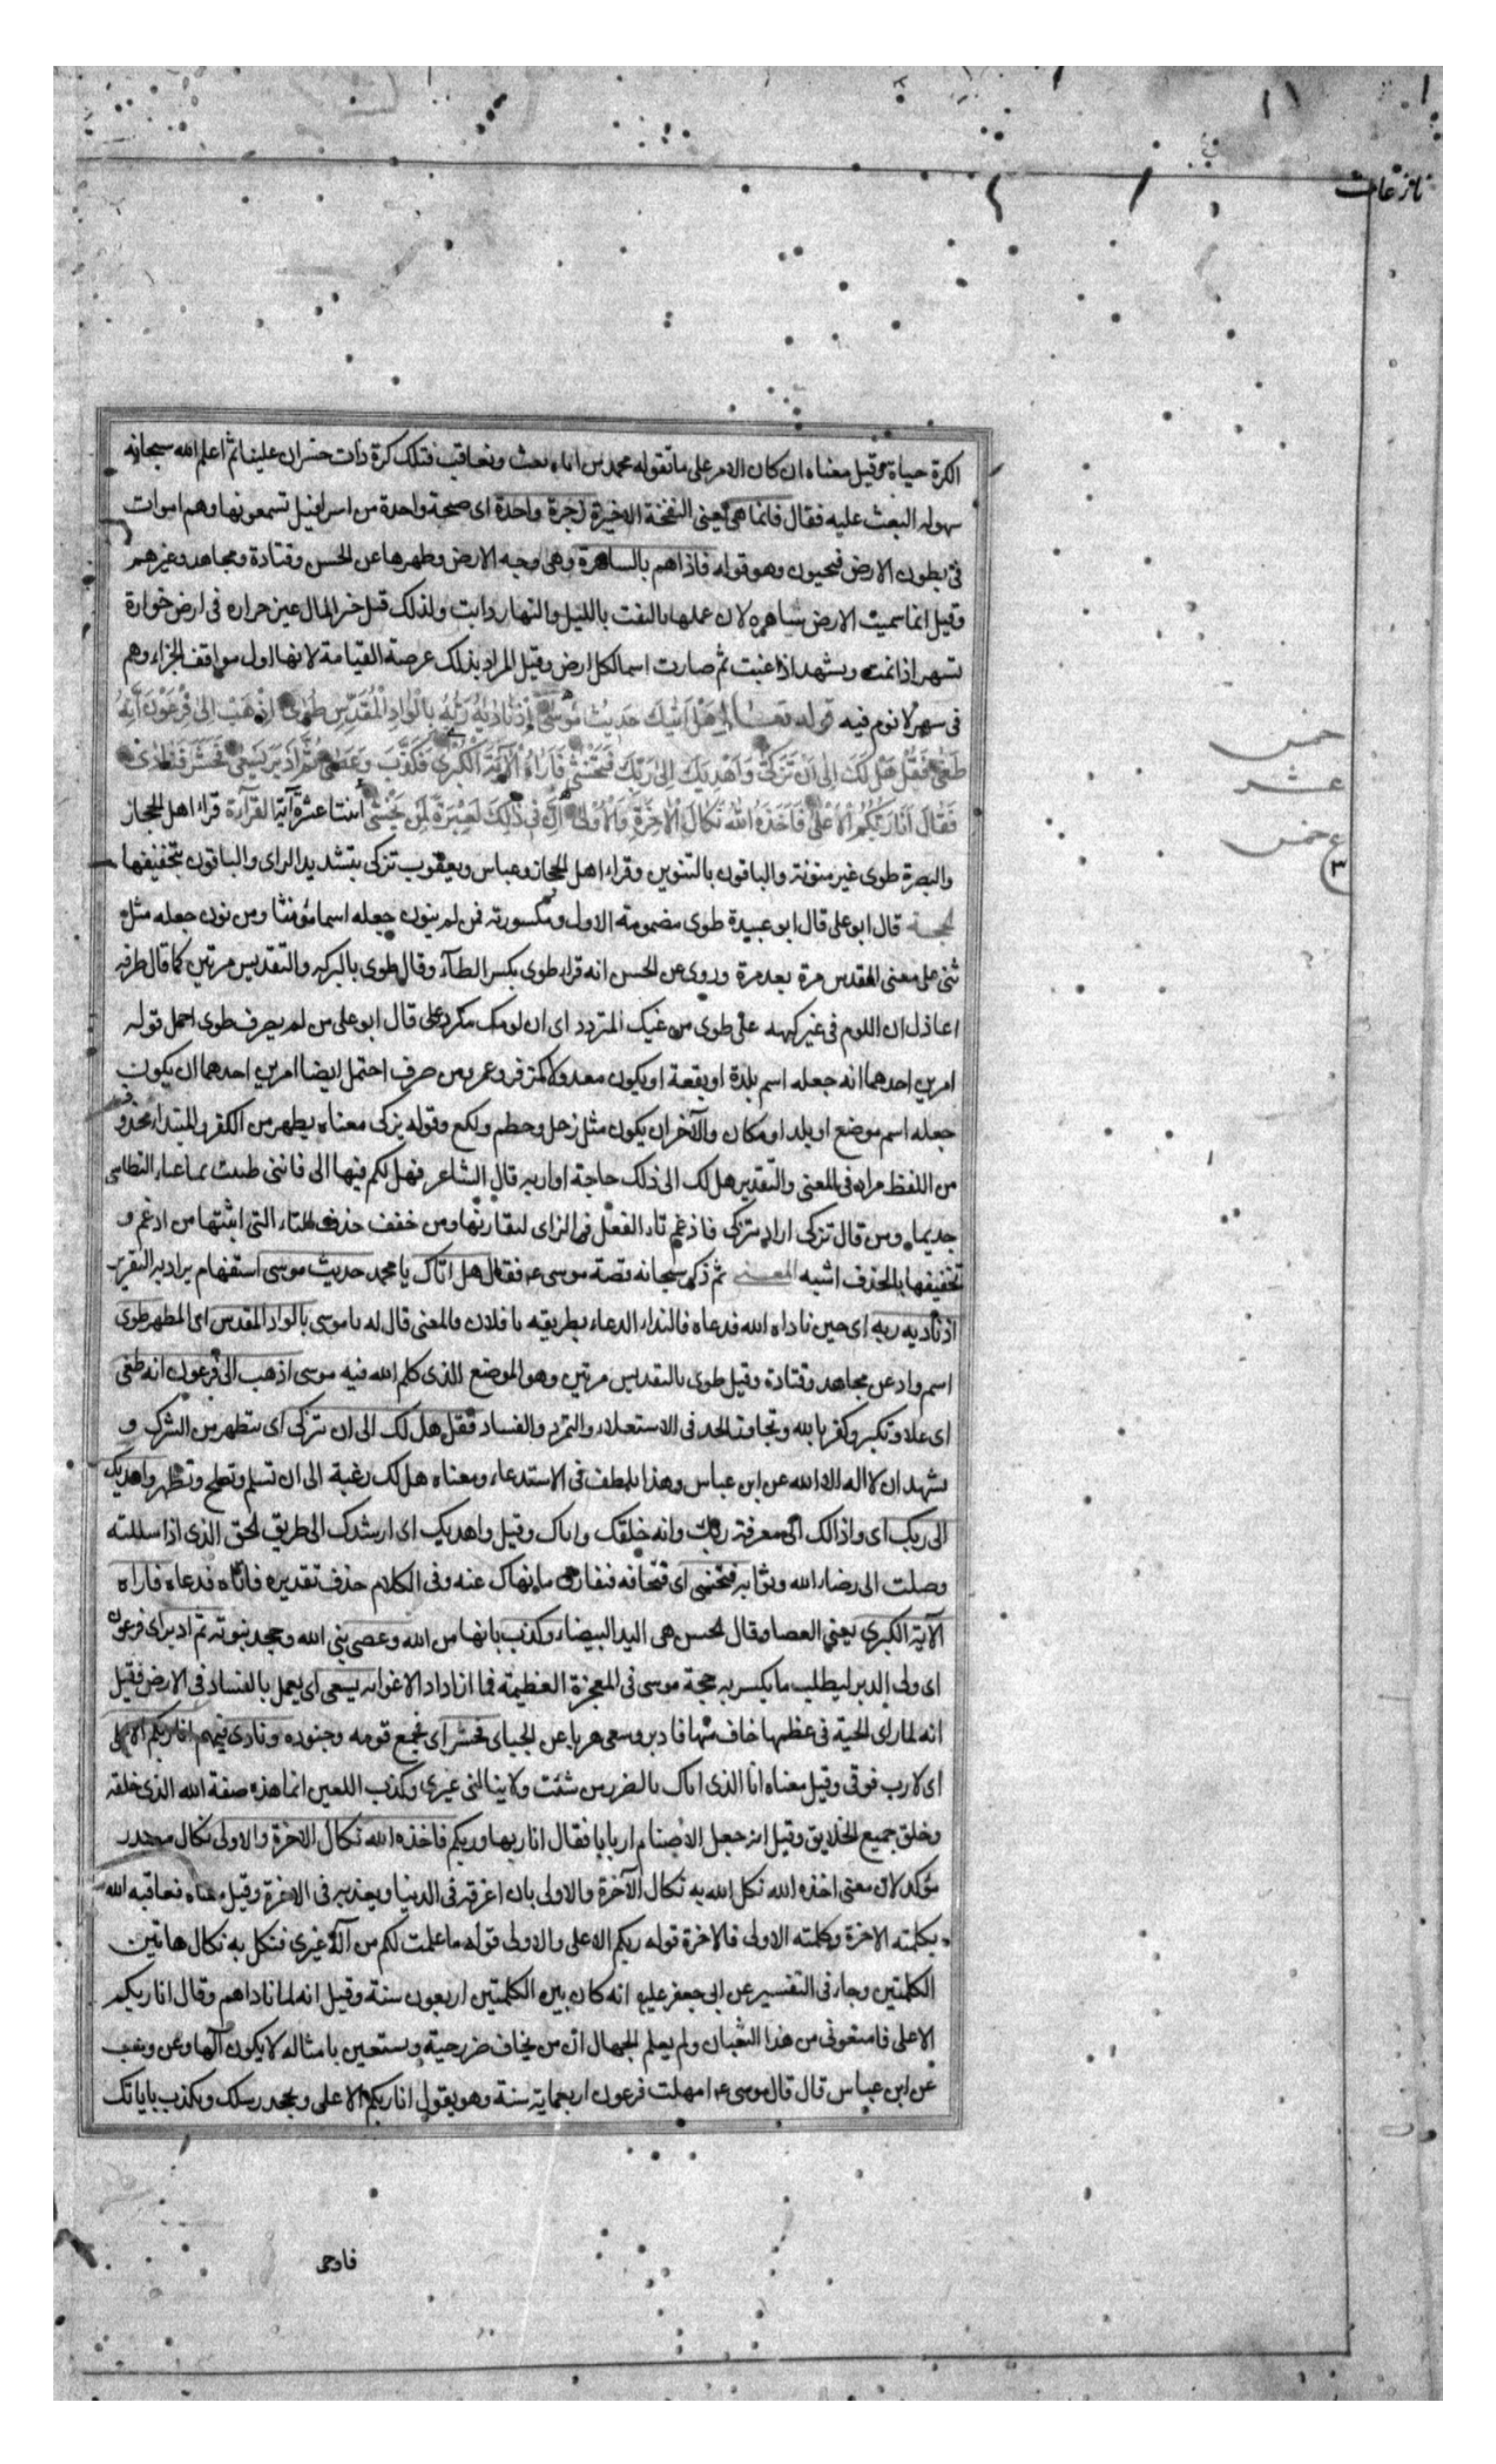 نازعات
الكرة حياة وقيل معناه ان كان الامر على ما تقوله محمد من انا نبعث ونعاقب فتلك كرة ذات خسران علينا ثم اعلم الله سبحانه
سهولة البعث عليه فقال فانما هى يعنى النفخة الاخيرة زجرة واحدة اى صيحة واحدة من اسرافيل تسمعونها وهم اموات
فى بطون الارض فيحيون وهو قوله فاذا هم بالساهرة وهى وجه الارض وظهرها عن الحسن وقتادة ومجاهد وغيرهم
وقيل انما سميت الارض ساهره لان عملها بالنبت بالليل والنهار دايب ولذلك قيل خير المال عين خراره فى ارض خوارة
تسهر اذا نمت وتشهد اذا غبت ثم صارت اسما لكل ارض وقيل المراد بذلك عرصة القيامة لانها اول مواقف الجزاء وهم
فى سهر لا نوم فيه قوله تعالى هَلْ اَتٰيكَ حَديثُ مُوسٰى اِذْ نَادٰيهُ رَبُّهُ بِالْوَادِ الْمُقَدَّسِ طُوًى اِذْهَبْ اِلٰى فِرْعَوْنَ اِنَّهُ
طَغٰى فَقُلْ هَلْ لَكَ اِلٰى اَنْ تَزَكّٰى وَاَهْدِيَكَ اِلٰى رَبِّكَ فَتَخْشٰى فَاَرٰاهُ الْاٰيَةَ الْكُبْرٰى فَكَذَّبَ وَعَصٰى ثُمَّ اَدْبَرَ يَسْعٰى فَحَشَرَ فَنَادٰى
فَقَالَ اَنَا رَبُّكُمُ الْاَعْلٰى فَاَخَذَهُ اللّٰهُ نَكَالَ الْاٰخِرَةِ وَالْاُولٰى اِنَّ فى ذٰلِكَ لَعِبْرَةً لِمَنْ يَخْشٰى اثنتا عشرة آية القرآءة قراء اهل الحجاز
والبصرة طوى غير منونة والباقون بالتنوين وقراء اهل الحجاز وعباس ويعقوب تزكى بتشديد الزاى والباقون بتخفيفها
لحجة قال ابو على قال ابو عبيدة طوى مضمومة الاول ومكسورته فمن لم ينون جعله اسما مؤنثا ومن نون جعله مثل
ثنى على معنى المقدس مرة بعد مرة وروى عن الحسن انه قراء طوى بكسر الطآء وقال طوى بالبركه والتقديس مرتين كما قال طرفه
اعاذل ان اللوم فى غير كهه على طوى من غيك المتردد اى ان لومك مكرر على قال ابو على من لم يصرف طوى احمل قوله
امرين احدهما انه جعله اسم بلدة او بقعة او يكون معدولا كزفر وعمر ومن صرف احتمل ايضا امرين احدهما ان يكون
جعله اسم موضع او بلد او مكان والآخر ان يكون مثل زحل وحطم ولكع وقوله تزكى معناه يطهر من الكفر والمبتداء محذوف
من اللفظ مراد فى المعنى والتقدير هل لك الى ذلك حاجة او اربه قال الشاعر فهل لكم فيها الى فاننى طبيب بما اعياء النطاسى
جديما ومن قال تزكى اراد تتزكى فادغم تاء التفعل فى الزاى لتقاربها ومن خفف حذف التاء التى اثبتها من ادغم و
تخفيفها بالحذف اشبه المعنى ثم ذكر سبحانه قصة موسى ع فقال هل اتاك يا محمد حديث موسى استفهام يراد به التقرير
اذ ناديه ربه اى حين ناداه الله فدعاه فالنداء الدعاء بطريقه يا فلان والمعنى قال له يا موسى بالواد المقدس اى المطهر طوى
اسم واد عن مجاهد وقتادة وقيل طوى بالتقديس مرتين وهو الموضع الذى كلم الله فيه موسى اذهب الى فرعون انه طغى
اى علا وتكبر وكفر بالله وتجاوز الحد فى الاستعلاء والتمرد والفساد فقل هل لك الى ان تزكى اى تتطهر من الشرك و
تشهد ان لا اله الا الله عن ابن عباس وهذا تلطف فى الاستدعاء ومعناه هل لك رغبة الى ان تسلم وتصلح وتطهر واهديك
الى ربك اى وادلك الى معرفة ربك وانه خلقك ورباك وقيل واهديك اى ارشدك الى طريق الحق الذى اذا سلكته
وصلت الى رضاء الله وثوابه فتخشى اى فتخافه فتفارق ما نهاك عنه وفى الكلام حذف تقديره فاتاه فدعاه فاراه
الآية الكبرى يعنى العصا وقال الحسن هى اليد البيضاء وكذب بانها من الله وعصى نبى الله وجحد نبوته ثم ادبر اى فرعون
اى ولى الدبر ليطلب ما يكسر به حجة موسى فى المعجزة العظيمة فما ازداد الا غوايه يسعى اى يعمل بالفساد فى الارض فقيل
انه لما راى الحية فى عظمها خاف منها فادبر وسعى هربا عن الجبائى فحشر اى فجمع قومه وجنوده ونادى فيهم انا ربكم الاعلى
اى لا رب فوقى وقيل معناه انا الذى انال بالضر من شئت ولا ينالنى غيرى وكذب اللعين انما هذه صفة الله الذى خلقه
وخلق جميع الخلايق وقيل انه جعل الاصنام اربابا فقال انا ربها وربكم فاخذه الله نكال الآخرة والاولى نكال مصدر
مؤكد لان معنى اخذه الله نكل الله به نكال الآخرة والاولى بان اغرقه فى الدنيا ويعذبه فى الآخرة وقيل معناه فعاقبه الله
بكلمته الاخرة وكلمته الاولى فالاخرة قوله ربكم الاعلى والاولى قوله ما علمت لكم من آله غيرى فنكل به نكال هاتين
الكلمتين وجاء فى التفسير عن ابى جعفر عليه انه كان بين الكلمتين اربعون سنة وقيل انه لما ناداهم وقال انا ربكم
الاعلى فامنعونى من هذا الثعبان ولم يعلم الجهال ان من يخاف ضرر حية ويستعين بامثاله لا يكون آلها وعن وهب
عن ابن عباس قال قال موسى ع امهلت فرعون اربعمايه سنة وهو يقول انا ربكم الاعلى ويجحد رسلك ويكذب باياتك
خمس
عشر
ع خمس
٣
فاوحى